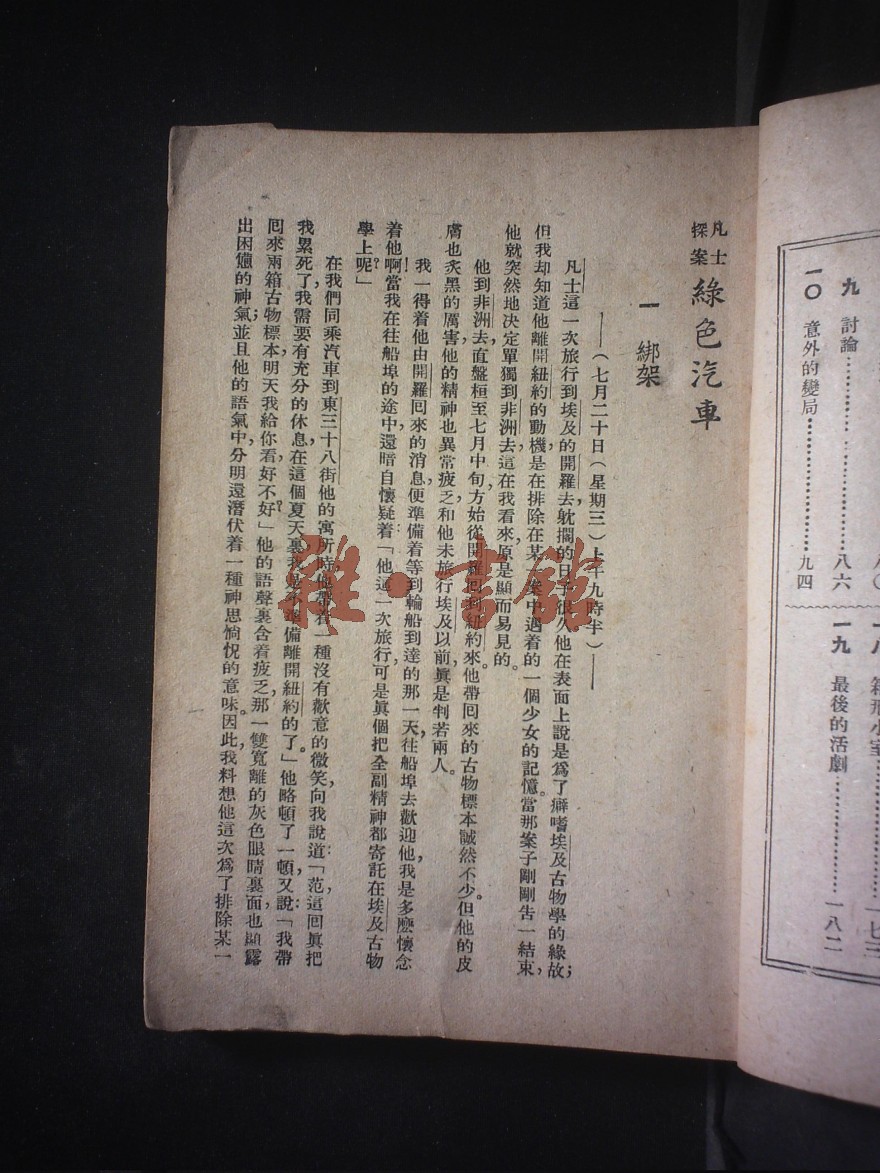 凡士探案 綠色汽車
一 綁架
——(七月二十日(星期三)上午九時半)——
凡士這一次旅行到埃及的開羅去,躭擱的日子很久。他在表面上說是爲了癖嗜埃及古物學的緣故;
但我却知道他離開紐約的動機是在排除在某一案中遇着的一個少女的記憶。當那案子剛剛告一結束,
他就突然地决定單獨到非洲去。這在我看來,原是顯而易見的。
他到非洲去,直盤桓至七月中旬,方始從開羅回到紐約來。他帶回來的古物標本誠然不少。但他的皮
膚也炙黑的厲害,他的精神也異常疲乏,和他未旅行埃及以前,眞是判若兩人。
我一得着他由開羅回來的消息,便準備着等到輪船到達的那一天,往船埠去歡迎他,我是多麽懷念
着他啊!當我在往船埠的途中,還暗自懷疑着:「他這一次旅行,可是眞個把全副精神都寄託在埃及古物
學上呢?」
在我們同乘汽車到東三十八街他的寓所時,他帶着一種沒有歡意的微笑,向我說道:「范,這回眞把
我累死了,我需要有充分的休息。在這個夏天裏,我是不準備離開紐約的了。」他略頓了一頓,又說:「我帶
回來兩箱古物標本;明天我給你看,好不好?」他的語聲裏含着疲乏,那一雙寬離的灰色眼睛裏面,也顯露
出困憊的神氣;並且他的語氣中,分明還潛伏着一種神思惝怳的意味。因此,我料想他這次爲了排除某一
雜·書館
一八 箱形小室 一七三
一九 最後的活劇 一八二
八〇
九 討論 八六
一〇 意外的變局 九四